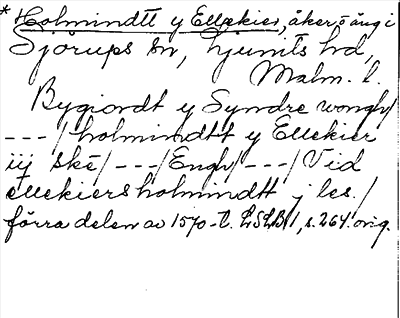 * Holmindtt y Ellekier, åker o äng i
Sjörups sn, Ljunits hd,
Malm. l.
Bygiordt y Syndre wongh/
---/ holmindtt y Ellekier
iij ske/ ---/ Engh/ ---/ Vid
ellekiers holmindtt j les./
förra delen av 1570-t. LSLB 1, s. 264. orig.